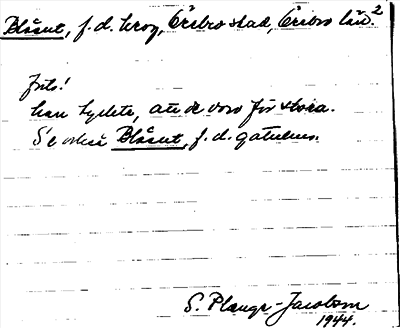 Blåsut, f.d. krog, Örebro stad, Örebro län. 2
Förb!
han tyckte, att de voro för stora.
Se också Blåsut, f.d. gatunamn.
S. Plange-Jacobson
1944.